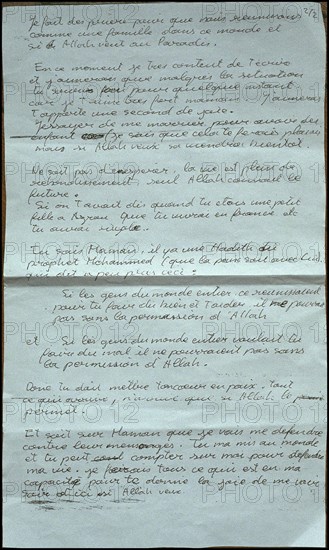 2/2
Je fait des prière pour que nous réunissons
comme une famille dans ce monde et
si d'Allah veut au Paradis.
En ce moment je très content de t'écrire
et j'aimerais que malgrès la situation
tu pour quelque instant
car je t'aime très fort maman. J'aimerais
t'apporté une second de joie.
J'essayer de me marrier pour avoir des
enfant Je sais que cela te ferais plaisir
mais si Allah veux sa viendras bientot.
Ne soit pas désesperer, la vie est plein de
rebondissement, seul Allah connait le
future.
Si on t'avait dis quand tu étais une petit
fille a Azrou que tu vivrai en france et
tu aurai
Tu sais Maman, il y a une Hadith du
prophèt Mohammed (que la paix soit avec Lui)
qui dit a peu plus ceci :
Si les gens du monde entier ce réunissaient
pour tu faire du bien et t'aider, il ne pouvrez
pas sans la permission d'Allah
et Si les gens du monde entier voulait tu
faire du mal il ne pourraient pas sans
la permission d'Allah.
Donc tu doit mettre ton coeur en paix. Tant
ce qui arrive, n'arrive que si Allah le
permet.
Et soit sur Maman que je vais me défendre
contre leur mensonges. Tu ma mis au monde
et tu peut compter sur moi pour défendre
ma vie. Je ferais tous ce qui est en ma
capacité pour te donne la joie de me voir
si Allah veux